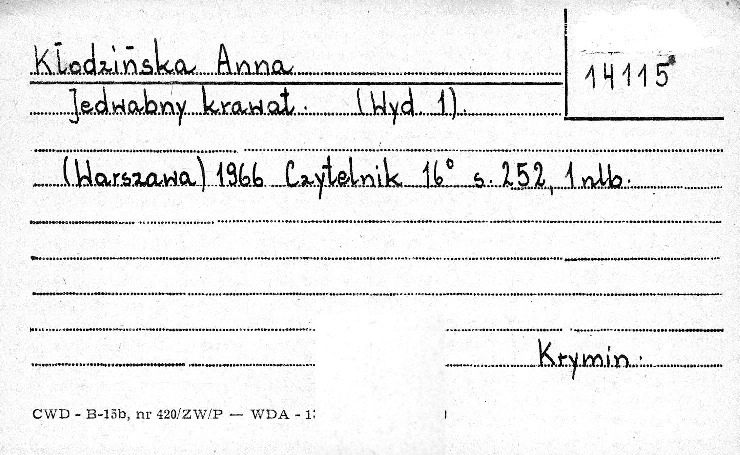 Kłodzińska Anna
14115
Jedwabny krawat. (Wyd. 1).
(Warszawa) 1966 Czytelnik 16° s. 252, 1 nlb.
Krymin.
CWD - B-15b, nr 420/ZW/P — WDA - 1